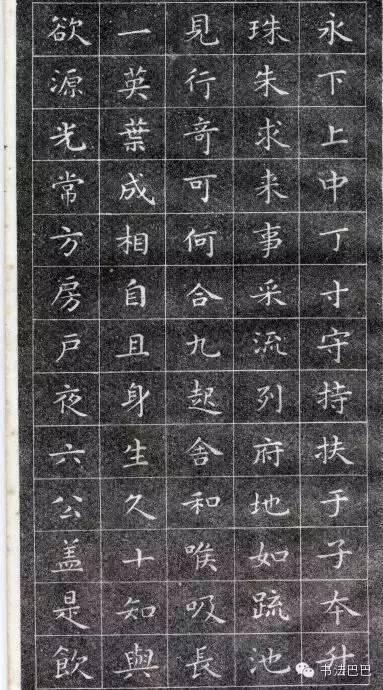 永下上中丁寸守持扶于子本升
珠朱求来事采流列府地如疏池
見行奇可何合九起舍和喉吸長
一英葉成相自且身生久十知與
欲源光常方房戶夜六公盖是飲
书法巴巴